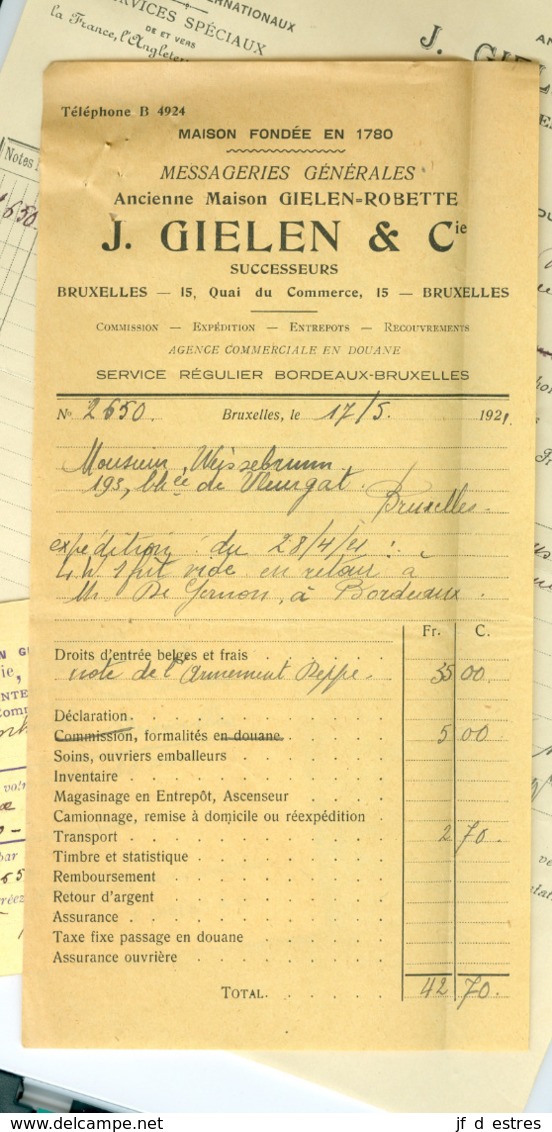 INTERNATIONAUX
SERVICES SPÉCIAUX
DE ET VERS
la France, l'Angleterre
J. GIEL
Notes
650
Téléphone B 4924
MAISON FONDÉE EN 1780
MESSAGERIES GÉNÉRALES
Ancienne Maison GIELEN=ROBETTE
J. GIELEN & Cie
SUCCESSEURS
BRUXELLES — 15, Quai du Commerce, 15 — BRUXELLES
COMMISSION — EXPÉDITION — ENTREPOTS — RECOUVREMENTS
AGENCE COMMERCIALE EN DOUANE
SERVICE RÉGULIER BORDEAUX-BRUXELLES
No 2650. Bruxelles, le 17/5. 1921.
Monsieur Weissebrunn.
193, Chée de Vleurgat.
Bruxelles.
expédition du 28/4/21 :
1 fut vide en retour à
Mr De Gernon, à Bordeaux.
Fr. C.
Droits d'entrée belges et frais
note de l'Armement Deppe. 35 00
Déclaration.
Commission, formalités en douane. 5 00
Soins, ouvriers emballeurs
Inventaire
Magasinage en Entrepôt, Ascenseur
Camionnage, remise à domicile ou réexpédition
Transport 2 70
Timbre et statistique
Remboursement
Retour d'argent
Assurance
Taxe fixe passage en douane
Assurance ouvrière
TOTAL. 42 70.
jf d estres